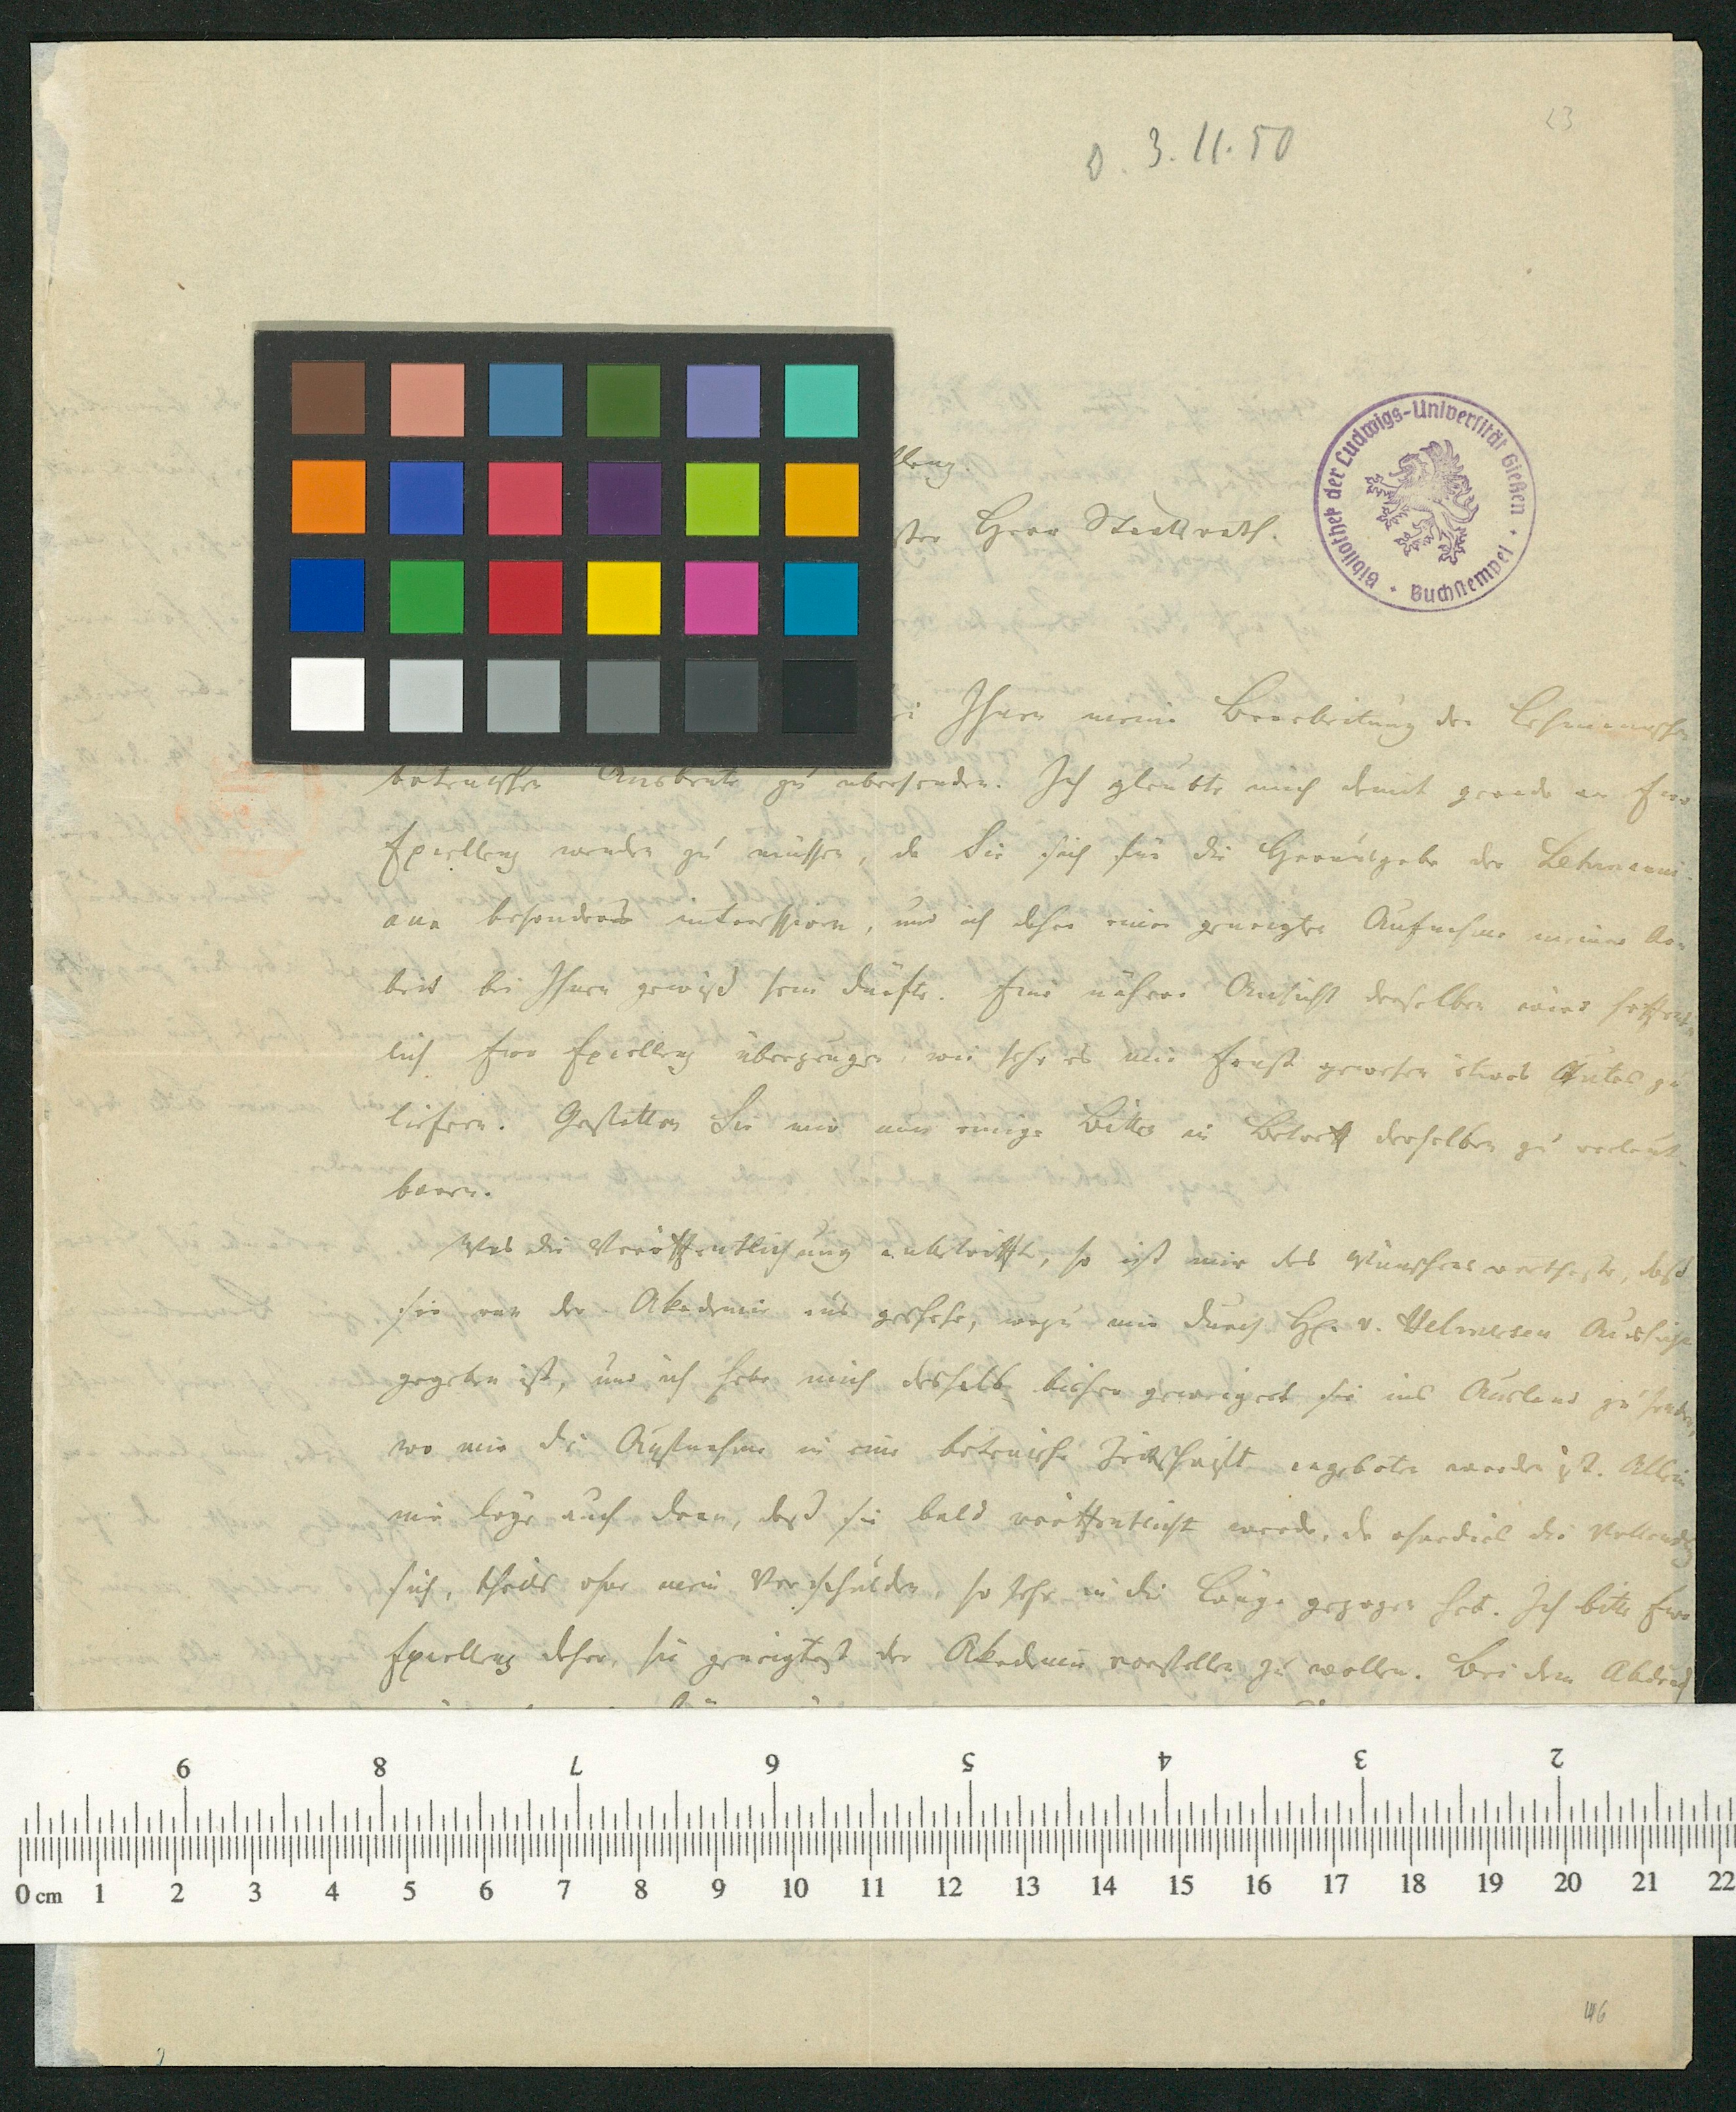 23
D. 3. 11. 50
llenz.
ster Herr Staatsrath.
Bibliothek der Ludwigs-Universität Gießen
Buchstempel
Ihnen meine Bearbeitung der Lehmannschen
botanischen Ausbeute zu übersenden. Ich glaubte mich damit gerade an Ew.
Excellenz wenden zu müssen, da Sie sich für die Herausgabe der Lehmanni-
ana besonders interessiren, und ich daher einer geneigten Aufnahme meiner Ar-
beit bei Ihnen gewiß sein dürfte. Eine nähere Ansicht derselben wird hoffent-
lich Ew. Excellenz überzeugen, wie sehr es mir Ernst gewesen etwas Gutes zu
liefern. Gestatten Sie mir nun einige Bitten in Betreff derselben zu verlaut-
baren.
Was die Veröffentlichung anbetrifft, so ist mir das Wünschenswertheste, daß
sie von der Akademie aus geschehe, wozu mir durch H. v. Helmersen Aussicht
gegeben ist, und ich habe mich deshalb bisher geweigert sie ins Ausland zu senden,
wo mir die Aufnahme in eine botanische Zeitschrift angeboten worden ist. Allein
mir läge auch daran, daß sie bald veröffentlicht werde, da ohnedies die Vollendg
sich, theils ohne mein Verschulden, so sehr in die Länge gezogen hat. Ich bitte Ew.
Excellenz daher, sie geneigtest der Akademie vorstellen zu wollen. Bei dem Abdruck
9 8 7 6 5 4 3 2
0 cm 1 2 3 4 5 6 7 8 9 10 11 12 13 14 15 16 17 18 19 20 21 22
146